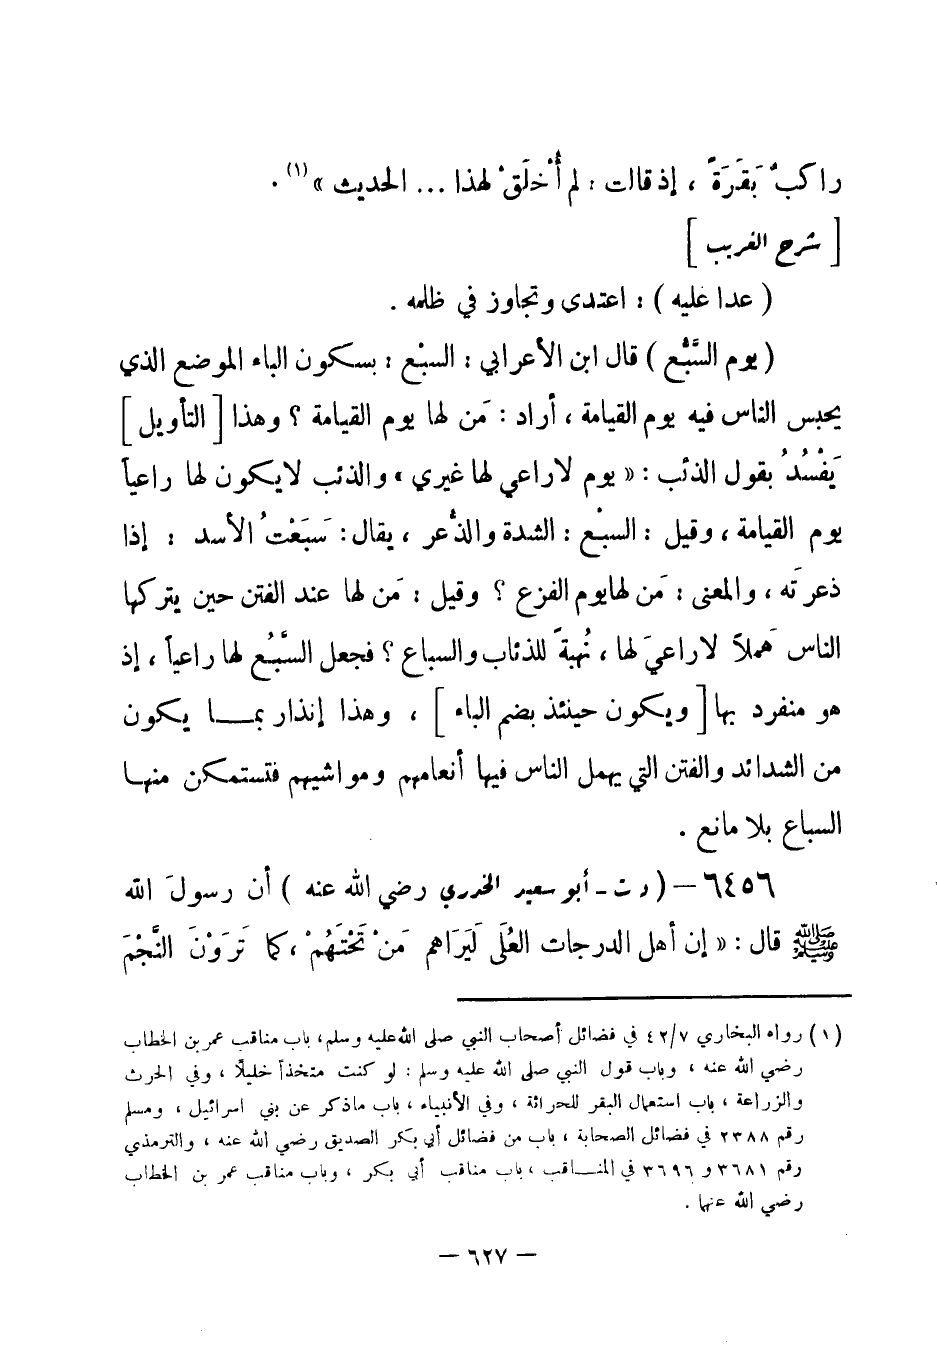 راكبٌ بَقَرَةً ، إذ قالت : لم أُخلَقْ لهذا ... الحديث » (١) .
[ شرح الغريب ]
( عدا عليه ) : اعتدى وتجاوز في ظلمه .
( يوم السَّبُع ) قال ابن الأعرابي : السبْع : بسكون الباء الموضع الذي
يحبس الناس فيه يوم القيامة ، أراد : مَن لها يوم القيامة ؟ وهذا [ التأويل ]
يَفْسُدُ بقول الذئب : « يوم لا راعي لها غيري » والذئب لا يكون لها راعياً
يوم القيامة ، وقيل : السبْع : الشدة والذُّعر ، يقال : سَبَعْتُ الأسد : إذا
ذعرتَه ، والمعنى : مَن لها يوم الفزع ؟ وقيل : مَن لها عند الفتن حين يتركها
الناس هَملاً لا راعيَ لها ، نُهبةً للذئاب والسباع ؟ فجعل السَّبُع لها راعياً ، إذ
هو منفرد بها [ ويكون حينئذ بضم الباء ] ، وهذا إنذار بمـا يكون
من الشدائد والفتن التي يهمل الناس فيها أنعامهم ومواشيهم فتستمكن منهـا
السباع بلا مانع .
٦٤٥٦ – ( د ت ـ أبو سعيد الخدري رضي الله عنه ) أن رسولَ الله
ﷺ قال : « إن أهل الدرجات العُلَى لَيَرَاهم مَنْ تَحْتَهُمْ ، كما تَرَوْنَ النَّجْمَ
( ١ ) رواه البخاري ٤٢/٧ في فضائل أصحاب النبي صلى الله عليه وسلم ، باب مناقب عمر بن الخطاب
رضي الله عنه ، وباب قول النبي صلى الله عليه وسلم : لو كنت متخذاً خليلاً ، وفي الحرث
والزراعة ، باب استعمال البقر للحراثة ، وفي الأنبياء ، باب ماذكر عن بني اسرائيل ، ومسلم
رقم ٢٣٨٨ في فضائل الصحابة ، باب من فضائل أبي بكر الصديق رضي الله عنه ، والترمذي
رقم ٣٦٨١ و ٣٦٩٦ في المنـاقب ، باب مناقب أبي بكر ، وباب مناقب عمر بن الخطاب
رضي الله عنهما .
– ٦٢٧ –